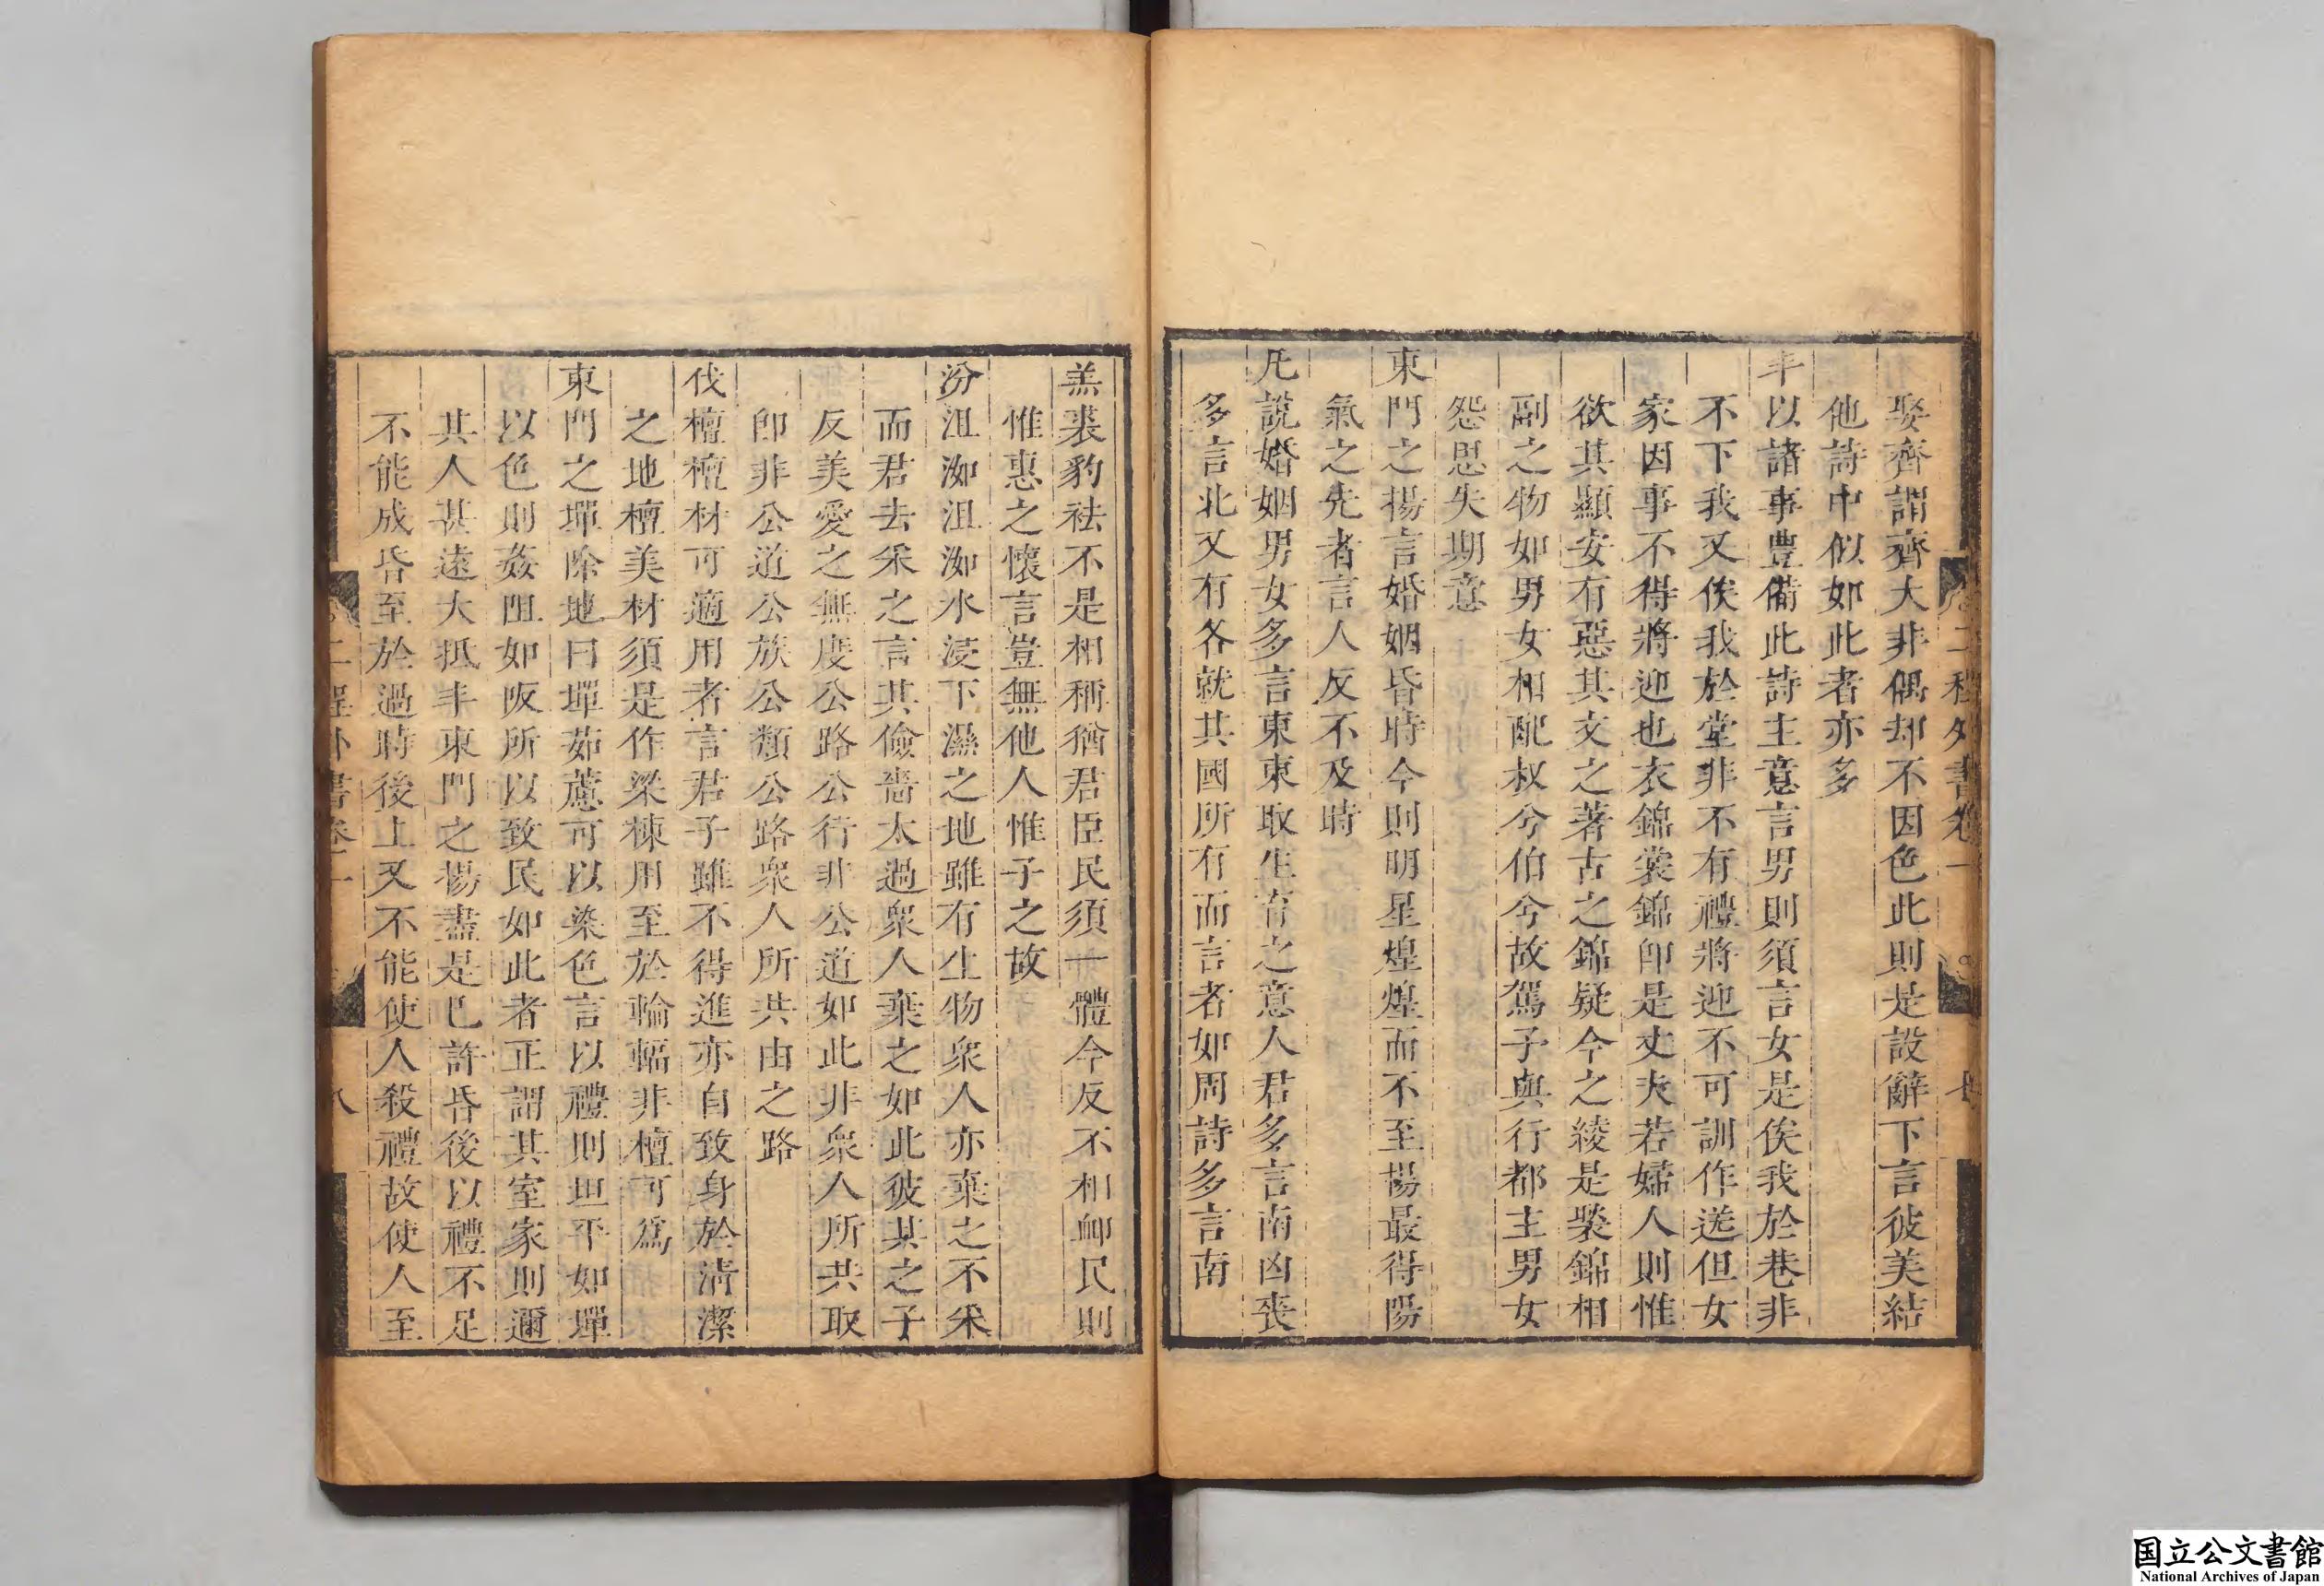 娶齊謂齊大非偶却不因色此則是設辭下言彼美結
他詩中似如此者亦多
丰以諸事豊備此詩主意言男則須言女是俟我於巷非
不下我又俟我於堂非不有禮將迎不可訓作送但女
家因事不得將迎也衣錦裳錦卽是丈夫若婦人則惟
欲其顯安有惡其文之著古之錦疑今之綾是褧錦相
副之物如男女相配叔兮伯兮故駕予與行都主男女
怨思失期意
東門之楊言婚姻昏時今則明星煌煌而不至楊最得陽
氣之先者言人反不及時
凡說婚姻男女多言東東取生育之意人君多言南凶喪
多言北又有各就其國所有而言者如周詩多言南
羔裘豹袪不是相稱猶君臣民須一體今反不相卹民則
惟惠之懷言豈無他人惟子之故
汾沮洳沮洳水浸下濕之地雖有生物衆人亦棄之不采
而君去采之言其儉嗇太過衆人棄之如此彼其之子
反美愛之無度公路公行非公道如此非衆人所共取
卽非公道公族公類公路衆人所共由之路
伐檀檀材可適用者言君子雖不得進亦自致身於清潔
之地檀美材須是作梁棟用至於輪輻非檀可爲
東門之墠除地曰墠茹藘可以染色言以禮則坦平如墠
以色則姦阻如阪所以致民如此者正謂其室家則邇
其人甚遠大抵丰東門之楊盡是已許昏後以禮不足
不能成昏至於過時後上又不能使人殺禮故使人至
二程外書卷一
七
二程外書卷一
八
国立公文書館
National Archives of Japan